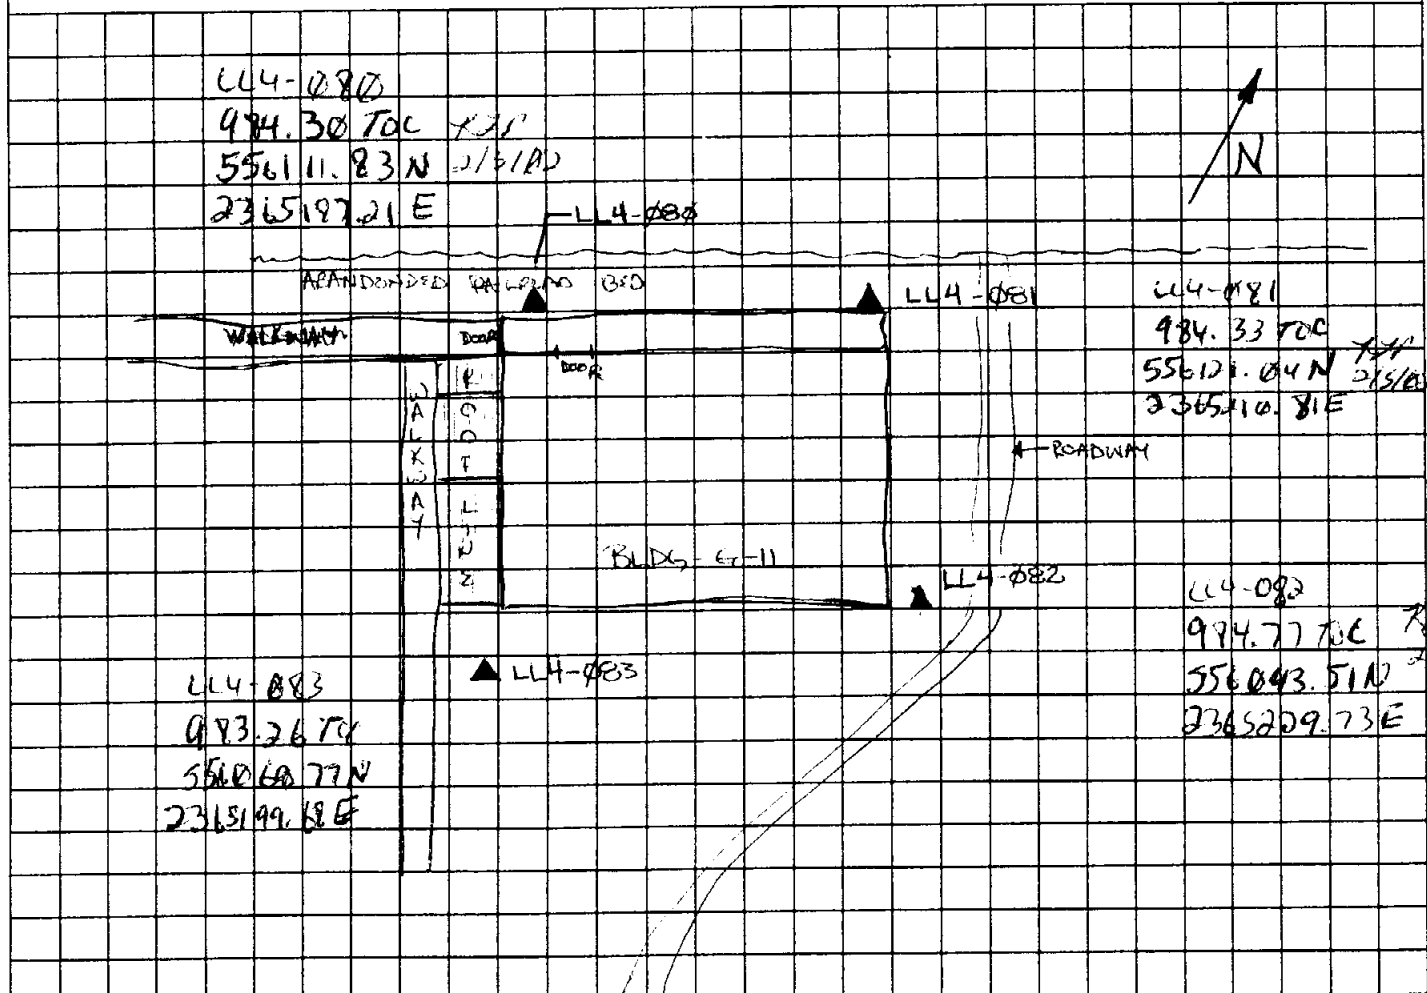 LL4-080
984.30 TOC
556111.83 N
2365187.21 E
N
LL4-080
ABANDONDED RAILROAD BED
LL4-081
LL4-081
984.33 TOC
556121.04 N
2365210.81 E
WALKWAY
DOOR
DOOR
WALKWAY
ROOT LINE
ROADWAY
BLDG-G-11
LL4-082
LL4-082
984.77 TOC
556093.51 N
2365229.73 E
LL4-083
LL4-083
983.26
556060.77 N
2365199.68 E